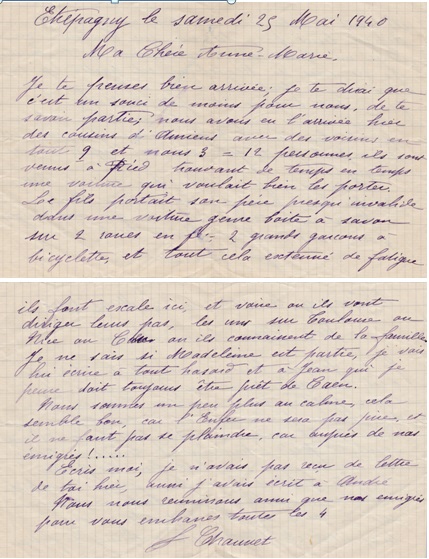 Etrepagny le samedi 25 Mai 1940
Ma Chère Anne-Marie,
Je te pense bien arrivée; je te dirai que
c'est un souci de moins pour nous, de te
savoir partie; nous avons eu l'arrivée hier
des cousins d'Amiens avec des voisins en
tout 9 et nous 3 = 12 personnes, ils sont
venus à pied trouvant de temps en temps
une voiture qui voulait bien les porter.
Le fils portait son père presqu'invalide
dans une voiture genre boîte à savon
sur 2 roues en fer. 2 grands garçons à
bicyclettes, et tout cela exténué de fatigue
ils font escale ici, et voire ou ils vont
diriger leurs pas, les uns sur Toulouse ou
Nice ou ou ils connaissent de la famille.
Je ne sais si Madeleine est partie, je vais
lui écrire à tout hasard et à Jean qui je
pense doit toujours être prêt de Caen.
Nous sommes un peu plus au calme, cela
semble bon, car l'Enfer ne sera pas pire, et
il ne faut pas se plaindre, car auprès de nos
émigrés!.....
Ecris moi, je n'avais pas reçu de lettre
de toi hier, aussi j'avais écrit à André
Nous nous réunissons ainsi que nos émigrés
pour vous embrasser toutes les 4
Chauvet